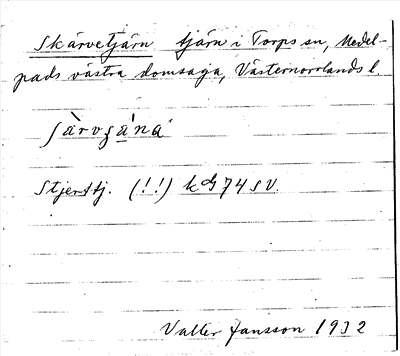 Skärvetjärn tjärn i Torps sn, Medel-
pads västra domsaga, Västernorrlands l.
Stjerntj. (!!) kbl 74 SV.
Valter Jansson 1932